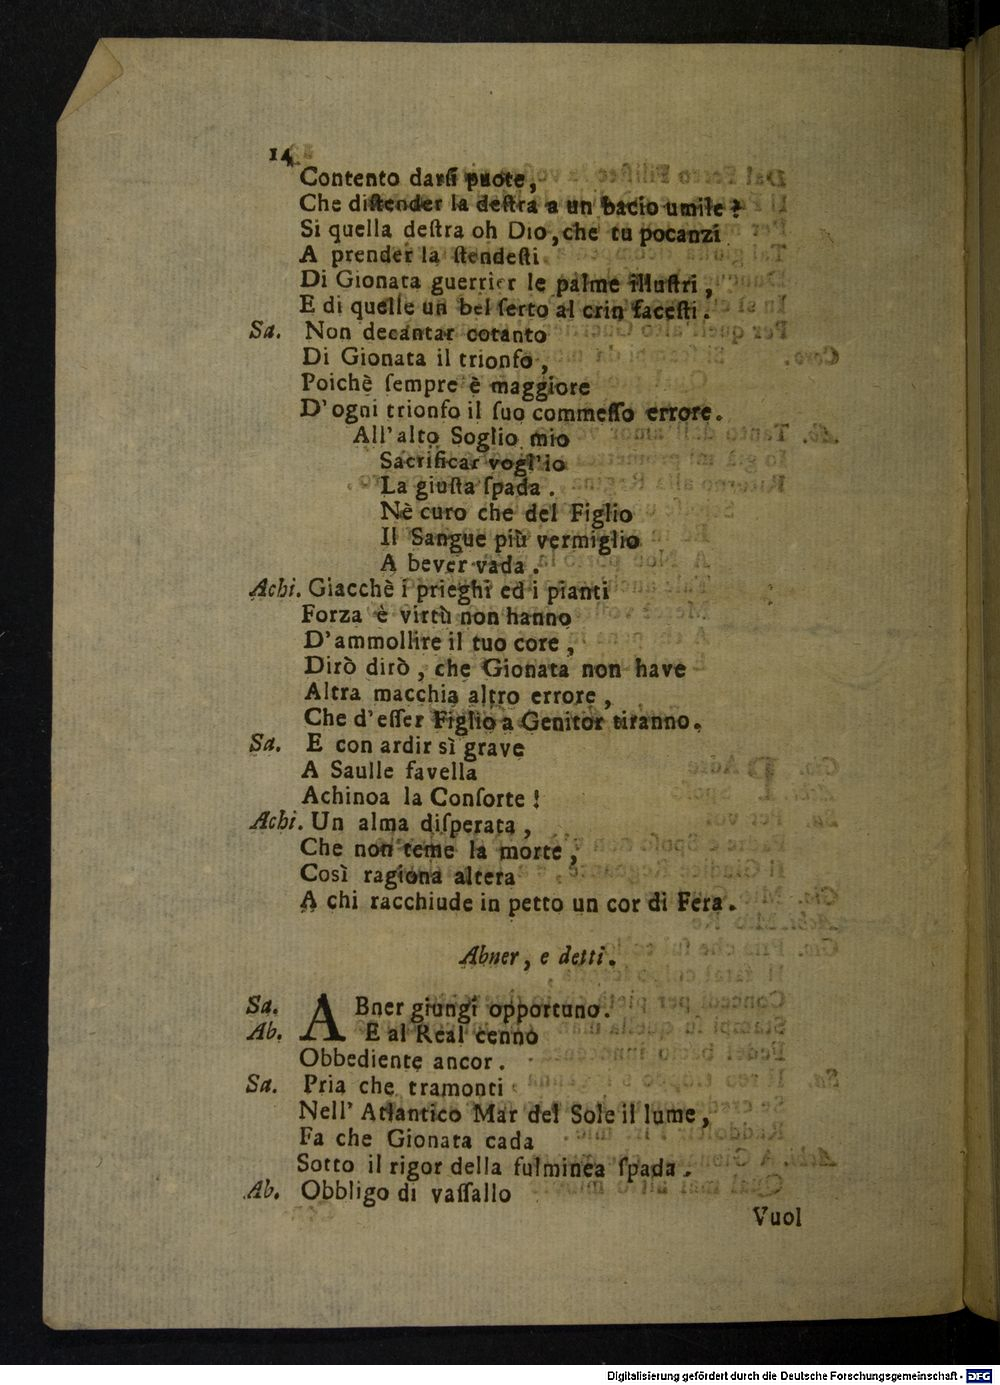 14
Contento darſi puote,
Che diſtender la deſtra a un bacio umile?
Si quella deſtra oh Dio, che tu pocanzi
A prender la ſtendeſti
Di Gionata guerrier le palme illuſtri,
E di quelle un bel ſerto al crin faceſti.
Sa. Non decantar cotanto
Di Gionata il trionfo,
Poichè ſempre è maggiore
D'ogni trionfo il ſuo commeſſo errore.
All'alto Soglio mio
Sacrificar vogl'io
La giuſta ſpada.
Nè curo che del Figlio
Il Sangue più vermiglio
A bever vada.
Achi. Giacchè i prieghi ed i pianti
Forza è virtù non hanno
D'ammollire il tuo core,
Dirò dirò, che Gionata non have
Altra macchia altro errore,
Che d'eſſer Figlio a Genitor tiranno.
Sa. E con ardir sì grave
A Saulle favella
Achinoa la Conſorte!
Achi. Un alma diſperata,
Che non teme la morte,
Così ragiona altera
A chi racchiude in petto un cor di Fera.
Abner, e detti.
Sa. ABner giungi opportuno.
Ab. E al Real cenno
Obbediente ancor.
Sa. Pria che tramonti
Nell' Atlantico Mar del Sole il lume,
Fa che Gionata cada
Sotto il rigor della fulminea ſpada.
Ab. Obbligo di vaſſallo
Vuol
Digitalisierung gefördert durch die Deutsche Forschungsgemeinschaft - DFG